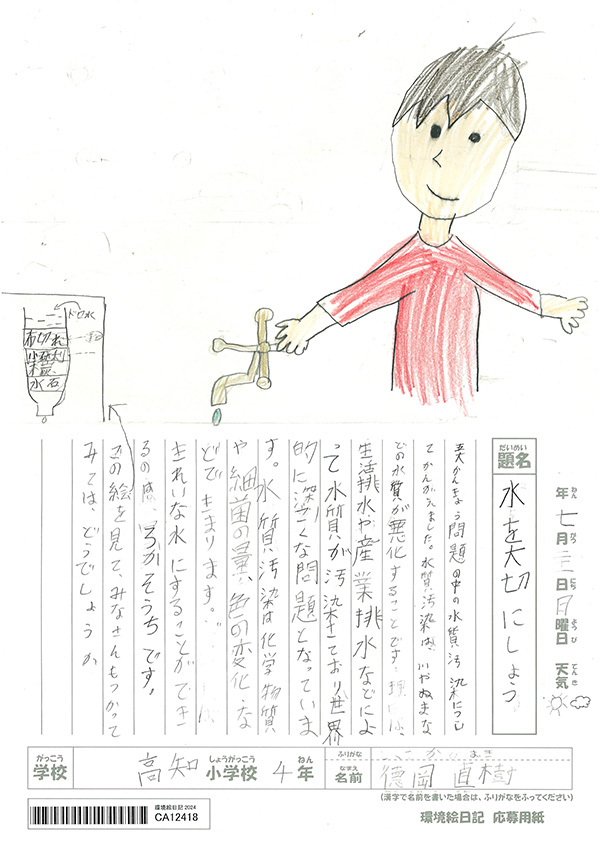 ドロ水
布切れ
小砂利
木炭
水石
年 七月 日 月曜日 天気
ねん がつ にち ようび てんき
だいめい
題名 水を大切にしよう。
かんきょう問題の中の水質汚染につい
てかんがえました。水質汚染は、川やぬまな
どの水質が悪化することです。現在は、
生活排水や産業排水などによ
って水質が汚染されており、世界
的に深こくな問題となっていま
す。水質汚染は化学物質
や細菌の量、色の変化な
どできまります。
きれいな水にすることができ
るのは、ろかそうちです。
この絵を見て、みなさんもつかって
みては、どうでしょうか
がっこう しょうがっこう ねん
学校 高知 小学校 4年
ふりがな
なまえ
名前 徳岡 直樹
(漢字で名前を書いた場合は、ふりがなをふってください)
環境絵日記 2024
CA12418
環境絵日記 応募用紙